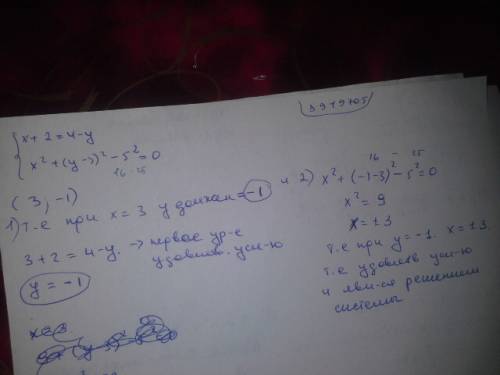 D919705
x+2=4-y
x²+(y-3)²-5²=0
16 25
(3, -1)
1) т.е при x=3 y должен = -1
3+2=4-y. → первое ур-е
удовлетв. усл-ю
y=-1
и 2) x²+(-1-3)²-5²=0
16 - 25
x²=9
x=±3
т.е при y=-1. x=±3.
т.е удовлетв усл-ю
и явл-ся решением
системы